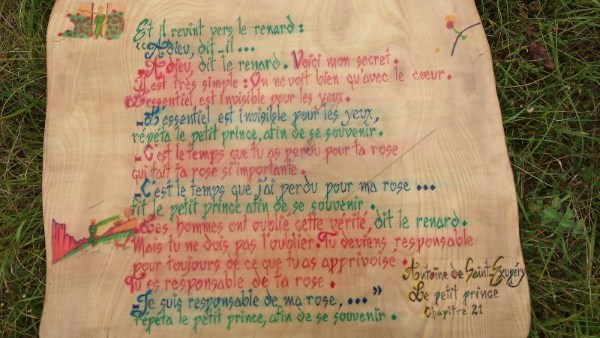 Et il revint vers le renard :
“Adieu, dit-il...
- Adieu, dit le renard. Voici mon secret.
Il est très simple : On ne voit bien qu'avec le cœur.
L'essentiel est invisible pour les yeux.
- L'essentiel est invisible pour les yeux,
répéta le petit prince, afin de se souvenir.
- C'est le temps que tu as perdu pour ta rose
qui fait ta rose si importante.
- C'est le temps que j'ai perdu pour ma rose ...
fit le petit prince afin de se souvenir.
- Les hommes ont oublié cette vérité, dit le renard.
Mais tu ne dois pas l'oublier. Tu deviens responsable
pour toujours de ce que tu as apprivoisé.
Tu es responsable de ta rose.
- Je suis responsable de ma rose, ... ”
répéta le petit prince, afin de se souvenir.
Antoine de Saint-Exupéry
Le petit prince
Chapitre 21